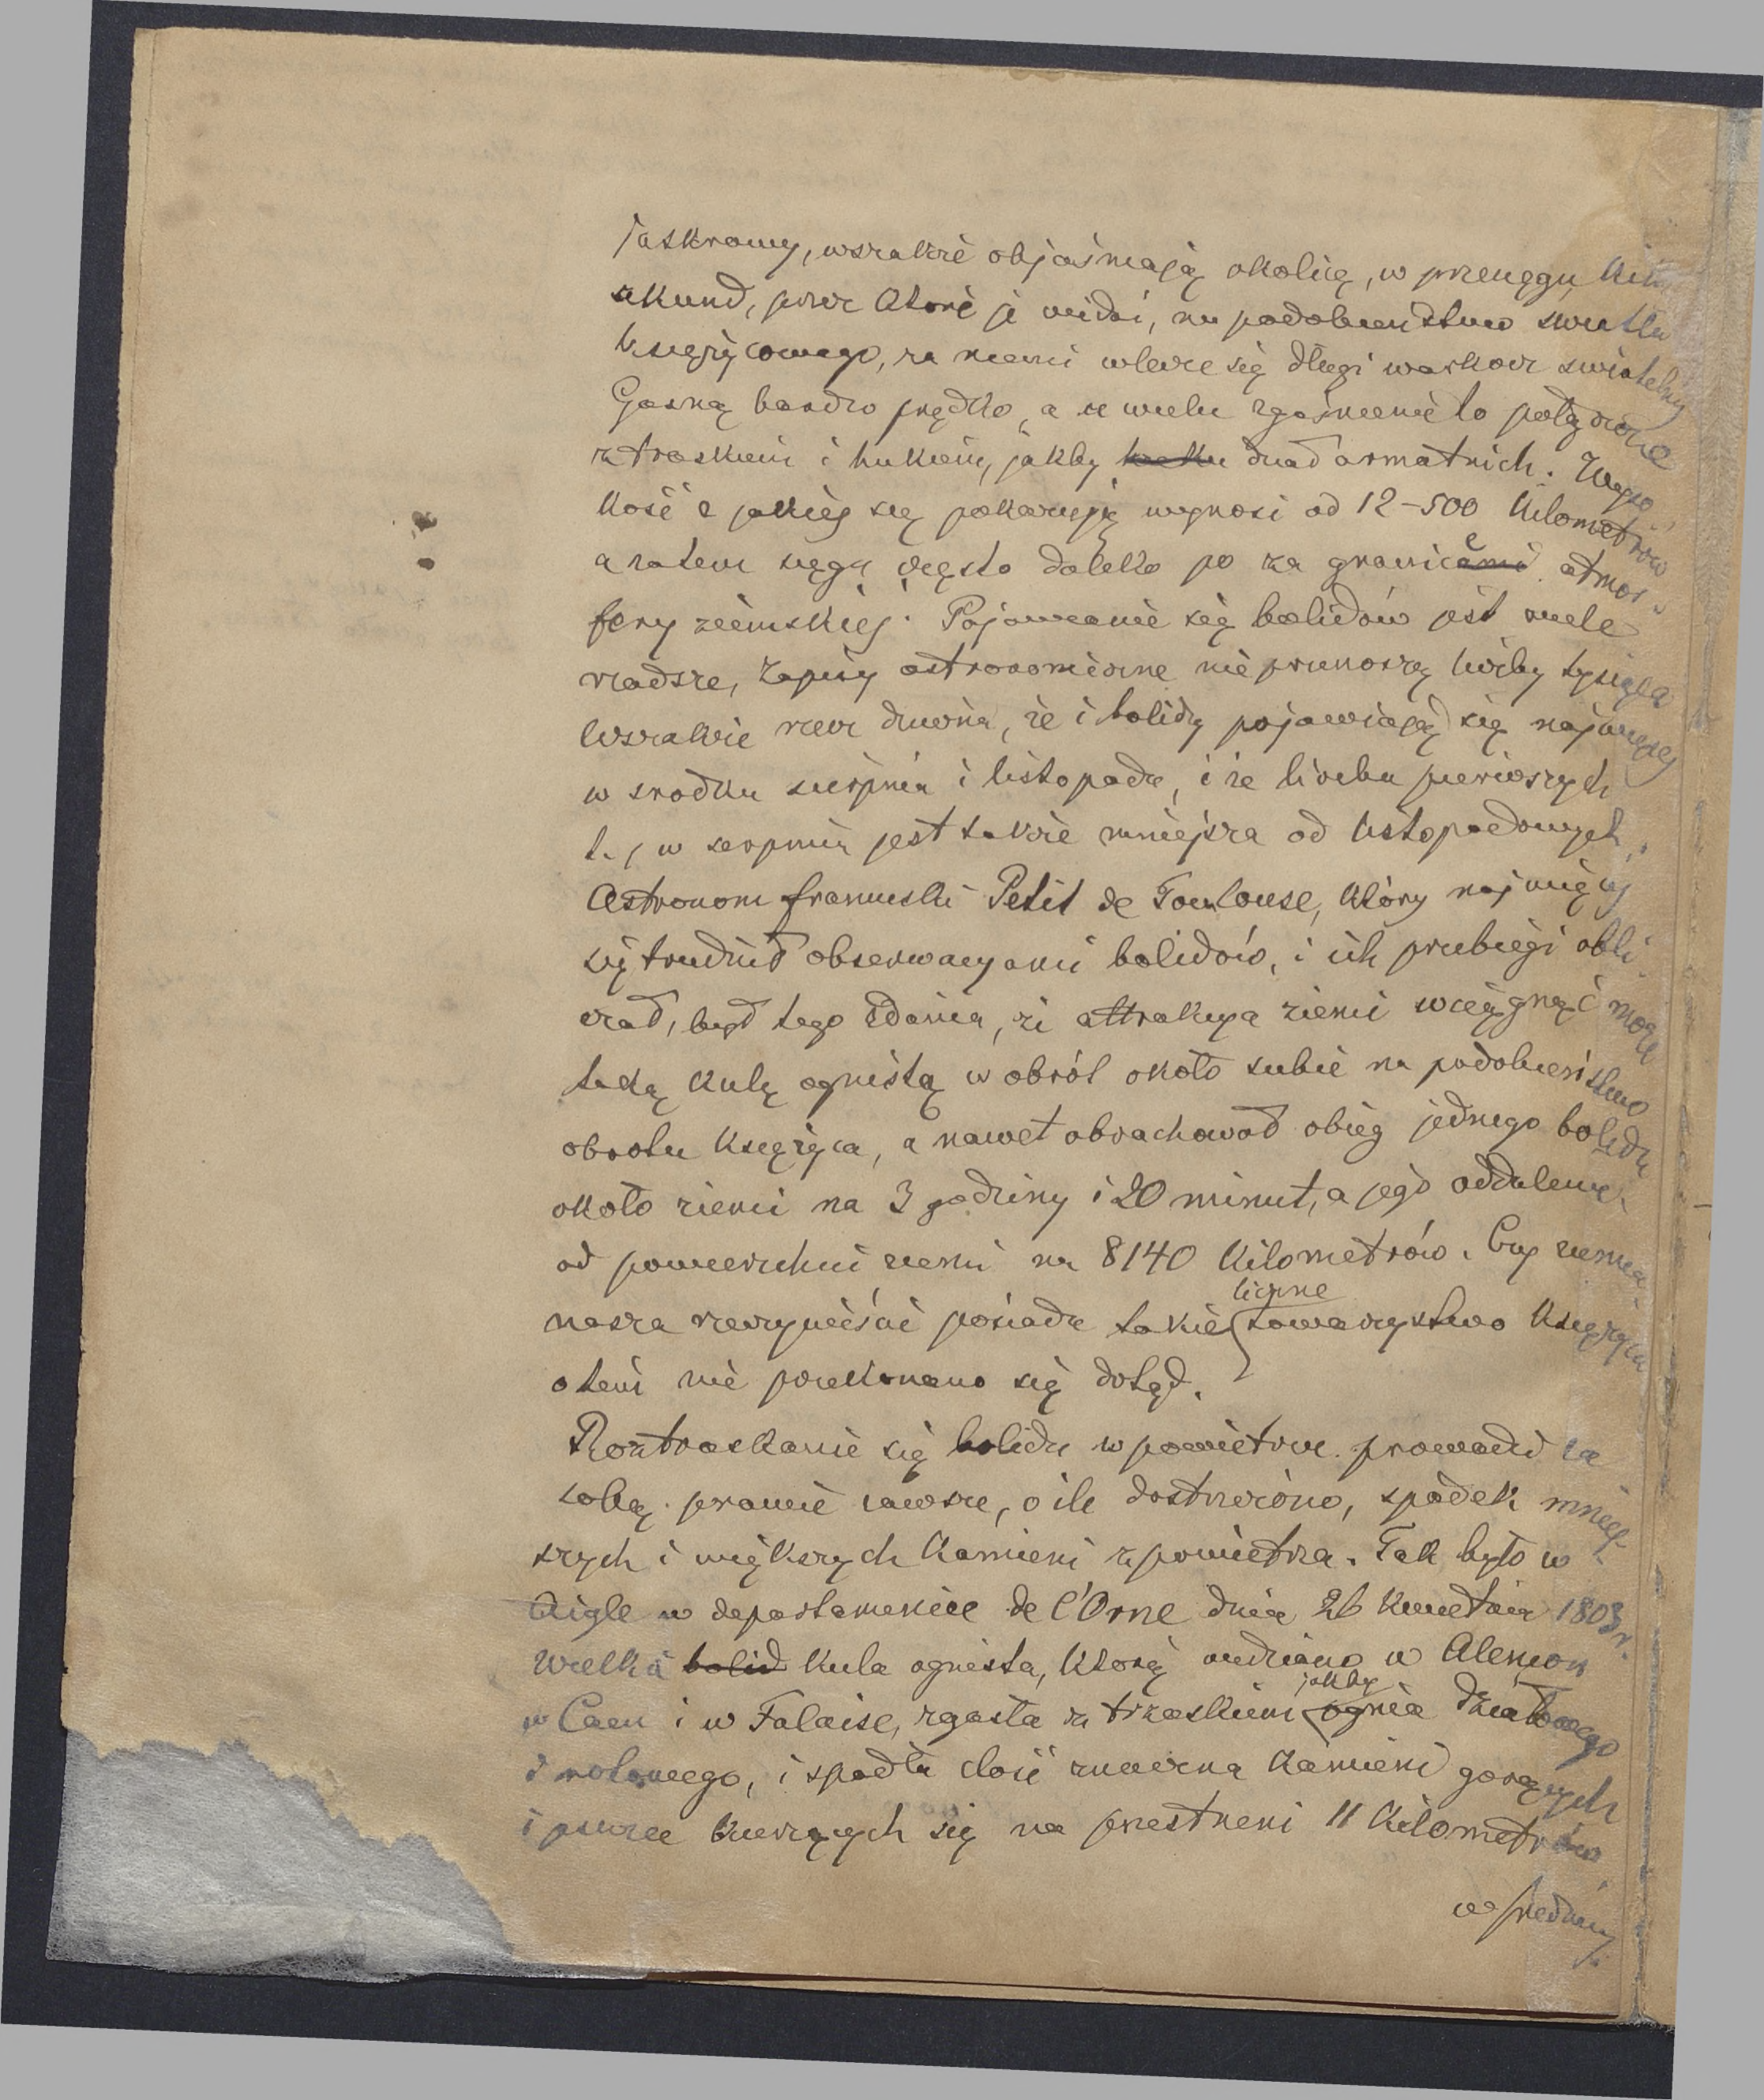 jaskrawy, wszakże objaśniają okolicę, w przeciągu kilku
sekund, przez które je widać, na podobieństwo światła
księżycowego, za niemi wlecze się długi warkocz świetlny
Gasną bardzo prędko, a u wielu zgaśnienie to połączone
z trzaskiem i hukiem, jakby dział armatnich. Wyso-
kość z jakiej się pokazują wynosi od 12-500 kilometrów
a zatem sięga często daleko po za granice atmos-
fery ziemskiej. Pojawianie się bolidów jest wiele
rzadsze, zapiski astronomiczne nie przenoszą liczby tysiąca
Wszakże rzecz dziwna, że i bolidy pojawiają się najwięcej
w środku sierpnia i listopada, i że liczba pierwszych
t. j. w sierpniu jest także mniejsza od listopadowych.
Astronom francuski Petit de Toulouse, który najwięcej
się trudnił obserwacyami bolidów, i ich przebiegi obli-
czał, był tego zdania, że attrakcya ziemi wciągnąć może
taką kulę ognistą w obrót około siebie na podobieństwo
obrotu księżyca, a nawet obrachował obieg jednego bolidu
około ziemi na 3 godziny i 20 minut, a jego oddalenie
od powierzchni ziemi na 8140 kilometrów. Czy ziemia
nasza rzeczywiście posiada takie liczne towarzystwo księżyca
o tem nie przekonano się dotąd.
Roztrzaskanie się bolidu w powietrzu prowadzi za
sobą prawie zawsze, o ile dostrzeżono, spadek mniej-
szych i większych kamieni z powietrza. Tak było w
Aigle w departamencie de l'Orne dnia 26 kwietnia 1803 r.
Wielka bolid kula ognista, którą widziano w Alençon
w Caen i w Falaise, zgasła z trzaskiem jakby ognia działowego
i rotowego, i spadła dość znaczna kamieni gorących
i jeszcze kurzących się na przestrzeni 11 kilometrów